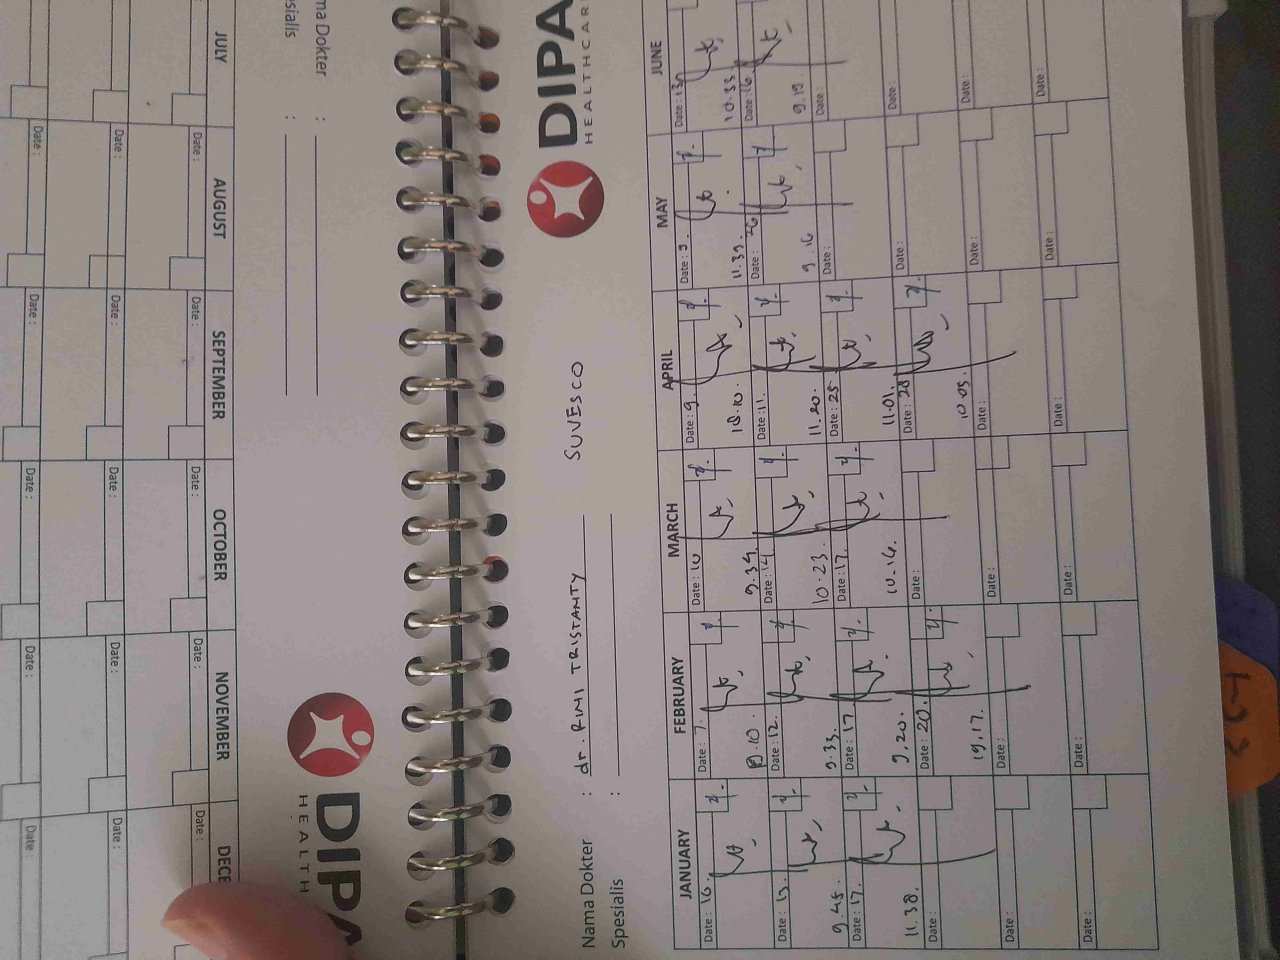 DIPA
HEALTHCAR
Nama Dokter : dr. RINI TRISTANTY SUVESCO
Spesialis :
JANUARY FEBRUARY MARCH APRIL MAY JUNE
Date: Date: 7. Date: 10 Date: 9. Date: 9. Date: 13
9.39 10.10. 11.39. 10.33
Date: 13. Date: 12. Date: 14 Date: 11. Date: Date: 16
9.45. 9.33. 10.23. 11.20. 9.16 9.19
Date: 17. Date: 17 Date: 17. Date: 25 Date: Date:
11.38. 9.20. 10.14. 11.01.
Date: Date: 20. Date: Date: 28 Date: Date:
19.17. 10.05.
Date: Date: Date: Date: Date: Date:
Date: Date: Date: Date: Date: Date:
DIPA
HEALTH
ma Dokter :
esialis :
JULY AUGUST SEPTEMBER OCTOBER NOVEMBER DECE
Date: Date: Date: Date: Date:
Date: Date: Date: Date: Date:
Date: Date: Date: Date: Date: